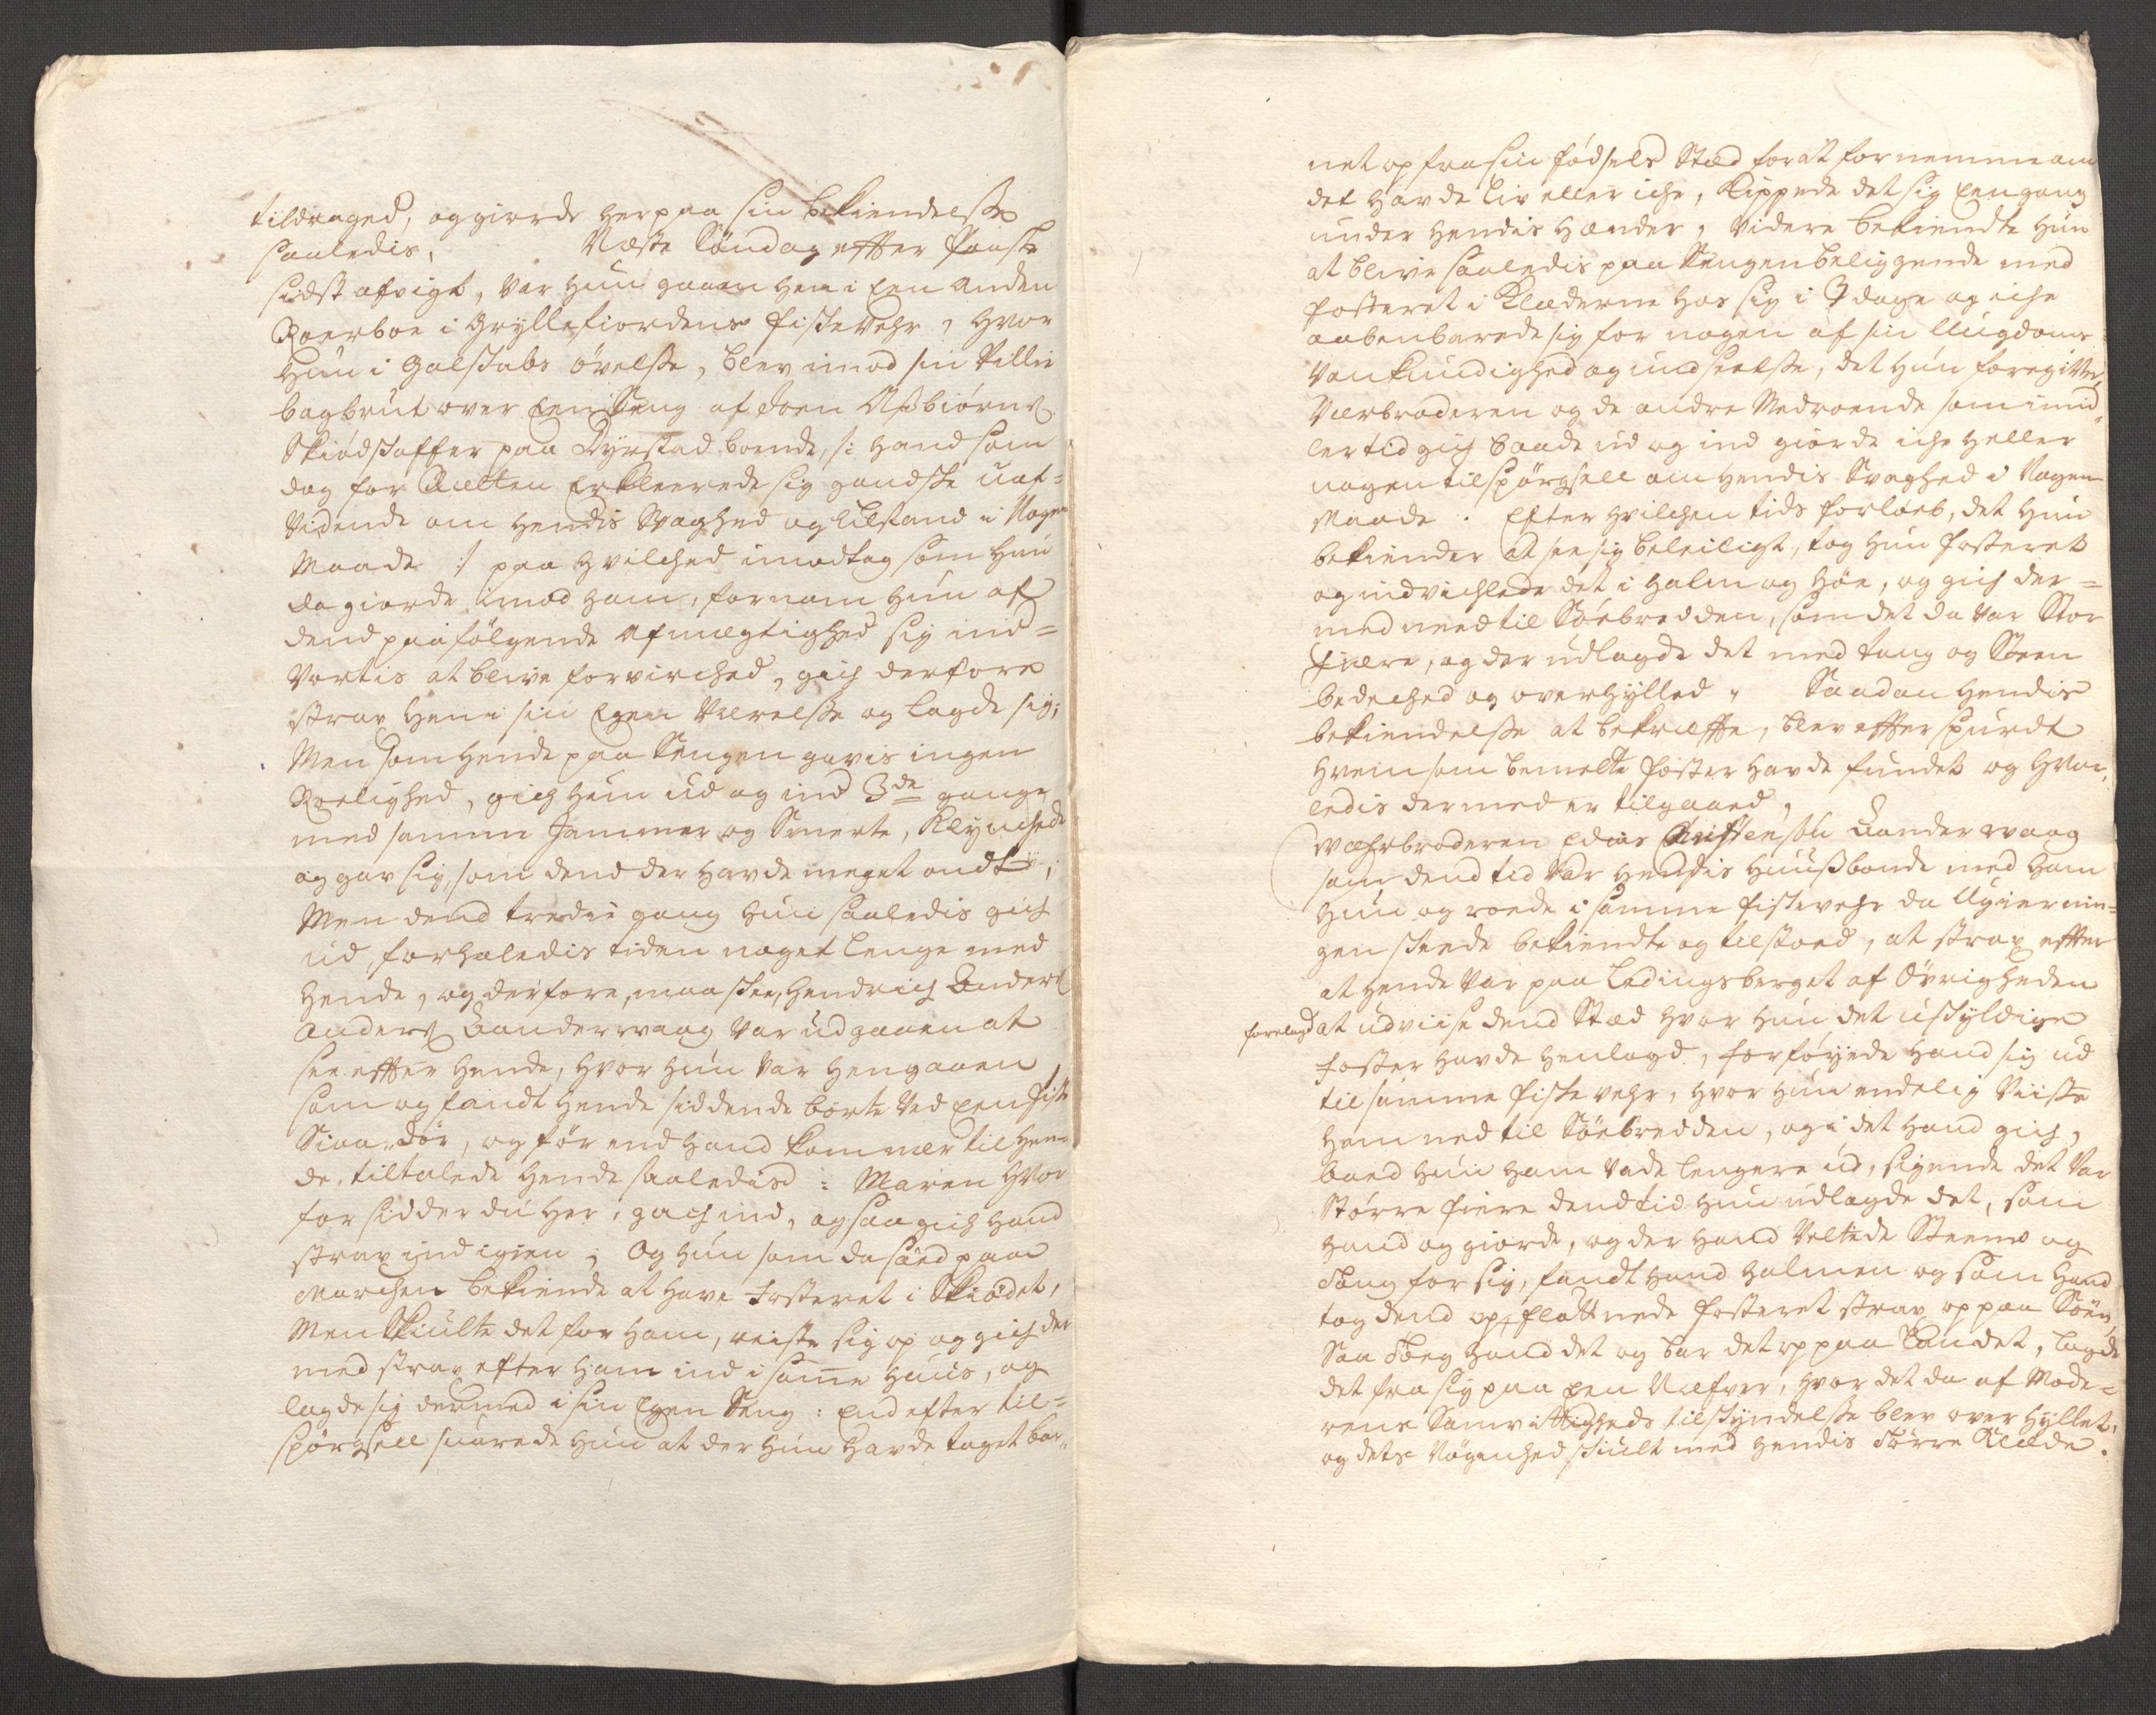 tildraged, og giorde her paa sin bekiendelse
saaledis, Næste Søndag efter Paaske
sidst afvigt, var hun gaaen hen i Een anden
Roerboe i Gryllefiordens fiskevehr, hvor
hun i Galskabs øvelse, blev imod sin Villie
bagbrut over Een Seng af Joen Asbiørns:
Skiødskaffer paa Dyrstad boende, /: hand som
dag for Rætten Erkleerede sig gandske uaf-
vidende om hendis Svaghed og tilstand i Nogen
Maade :/ paa hvilched imodtag som hun
da giorde imod ham, fornam hun af
dend paafølgende Afmegtighed sig ind-
vortis at blive forvirched, gich derfore
strax hen i sin Egen Værelse og lagde sig;
Men som hende paa Sengen gavis ingen
Roelighed, gich hun ud og ind 3de gange
med samme Jammer og Smerte, Klynchede
og gav sig, som dend der havde meget ondt;
Men dend tredie gang hun saaledis gich
ud, forhaledis tiden noget lenge med
hende, og derfore, maaskee, Hendrich Anders:
Anders: Sandervaag var udgaaen at
see efter hende, hvor hun var hengaaen
som og fandt hende siddende borte ved Een fiske
Siaa-dør, og før end hand kommer til hen-
de, tiltalede hende saaledis: Maren hvor
for sidder du her, gach ind, og saa gich hand
strax ind igien; Og hun som da saed paa
Marchen bekiende at have Fosteret i Skiødet,
Men Skiulte det for ham, reiste sig op og gich der
med strax efter ham ind i samme Huus, og
lagde sig dermed i sin Egen Seng: End efter til-
spørgsell suarede hun at der hun havde taget bar-
net op fra sin fødsels Stæd for at fornemme om
det havde Liv eller iche, Kippede det sig Een gang
under hendis hænder, videre bekiendte hun
at blive saaledis paa Sengen beliggende med
fosteret i Klæderne hos sig i 3 dage og iche
aabenbarede sig for nogen af sin Ungdoms
Vankundighed og undseelse, det hun foregitter,
Værbroderen og de andre Medroende som imid-
lertid gich baade ud og ind giorde iche heller
nogen tilspørgsell om hendis Svaghed i Nogen
Maade. Efter hvilchen tids forløeb, det hun
bekiender at see sig beleiligt, tog hun fosteret
og indvichlede det i Halm og Høe, og gich der-
med need til Søebredden, som det da var Stor
fiære, og der udlagde det med tang og Steen
bedeched og overhylled, Saadan hendis
bekiendelse at bekræfte, blev efter spurdt
hvem som bemelte foster havde fundet og hvor-
ledis dermed er tilgaaed,
Wæhrbroderen Elias Christensøn Sandervaag
som dend tid var hendis Huusbonde med ham
hun og roede i samme fiskevehr da Ugiernin-
gen skeede bekiendte og tilstoed, at strax efter
at hende var paa Ledingsberget af Øvrigheden
forelagd at udviise dend Stæd hvor hun det uskyldige
Foster havde henlagd, forføyede hand sig ud
til samme fiskevehr, hvor hun endelig Viiste
ham ned til Søebredden, og i det hand gich,
baed hun ham vade lengere ud, sigende det var
Større fiere dend tid hun udlagde det, som
hand og giorde, og der hand Veltede Steene og
Tang for sig, fandt hand halmen og som hand
tog dend op, flottnede fosteret strax op paa Søen,
Saa tog hand det og bar det op paa Landet, lagde
det fra sig paa Een Næfver, hvor det da af Mode-
rens Samvittigheds tilskyndelse blev over hyllet,
og dets Nøgenhed skiult med hendis Tørre Klæde.